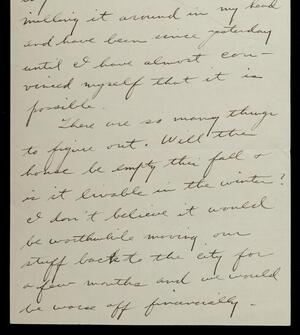 milling it around in my head
and have been since yesterday
until I have almost con-
vinced myself that it is
possible.
There are so many things
to figure out. Will the
house be empty this fall &
is it livable in the winter?
I don't believe it would
be worthwhile moving our
stuff back to the city for
a few months and we would
be worse off financially.